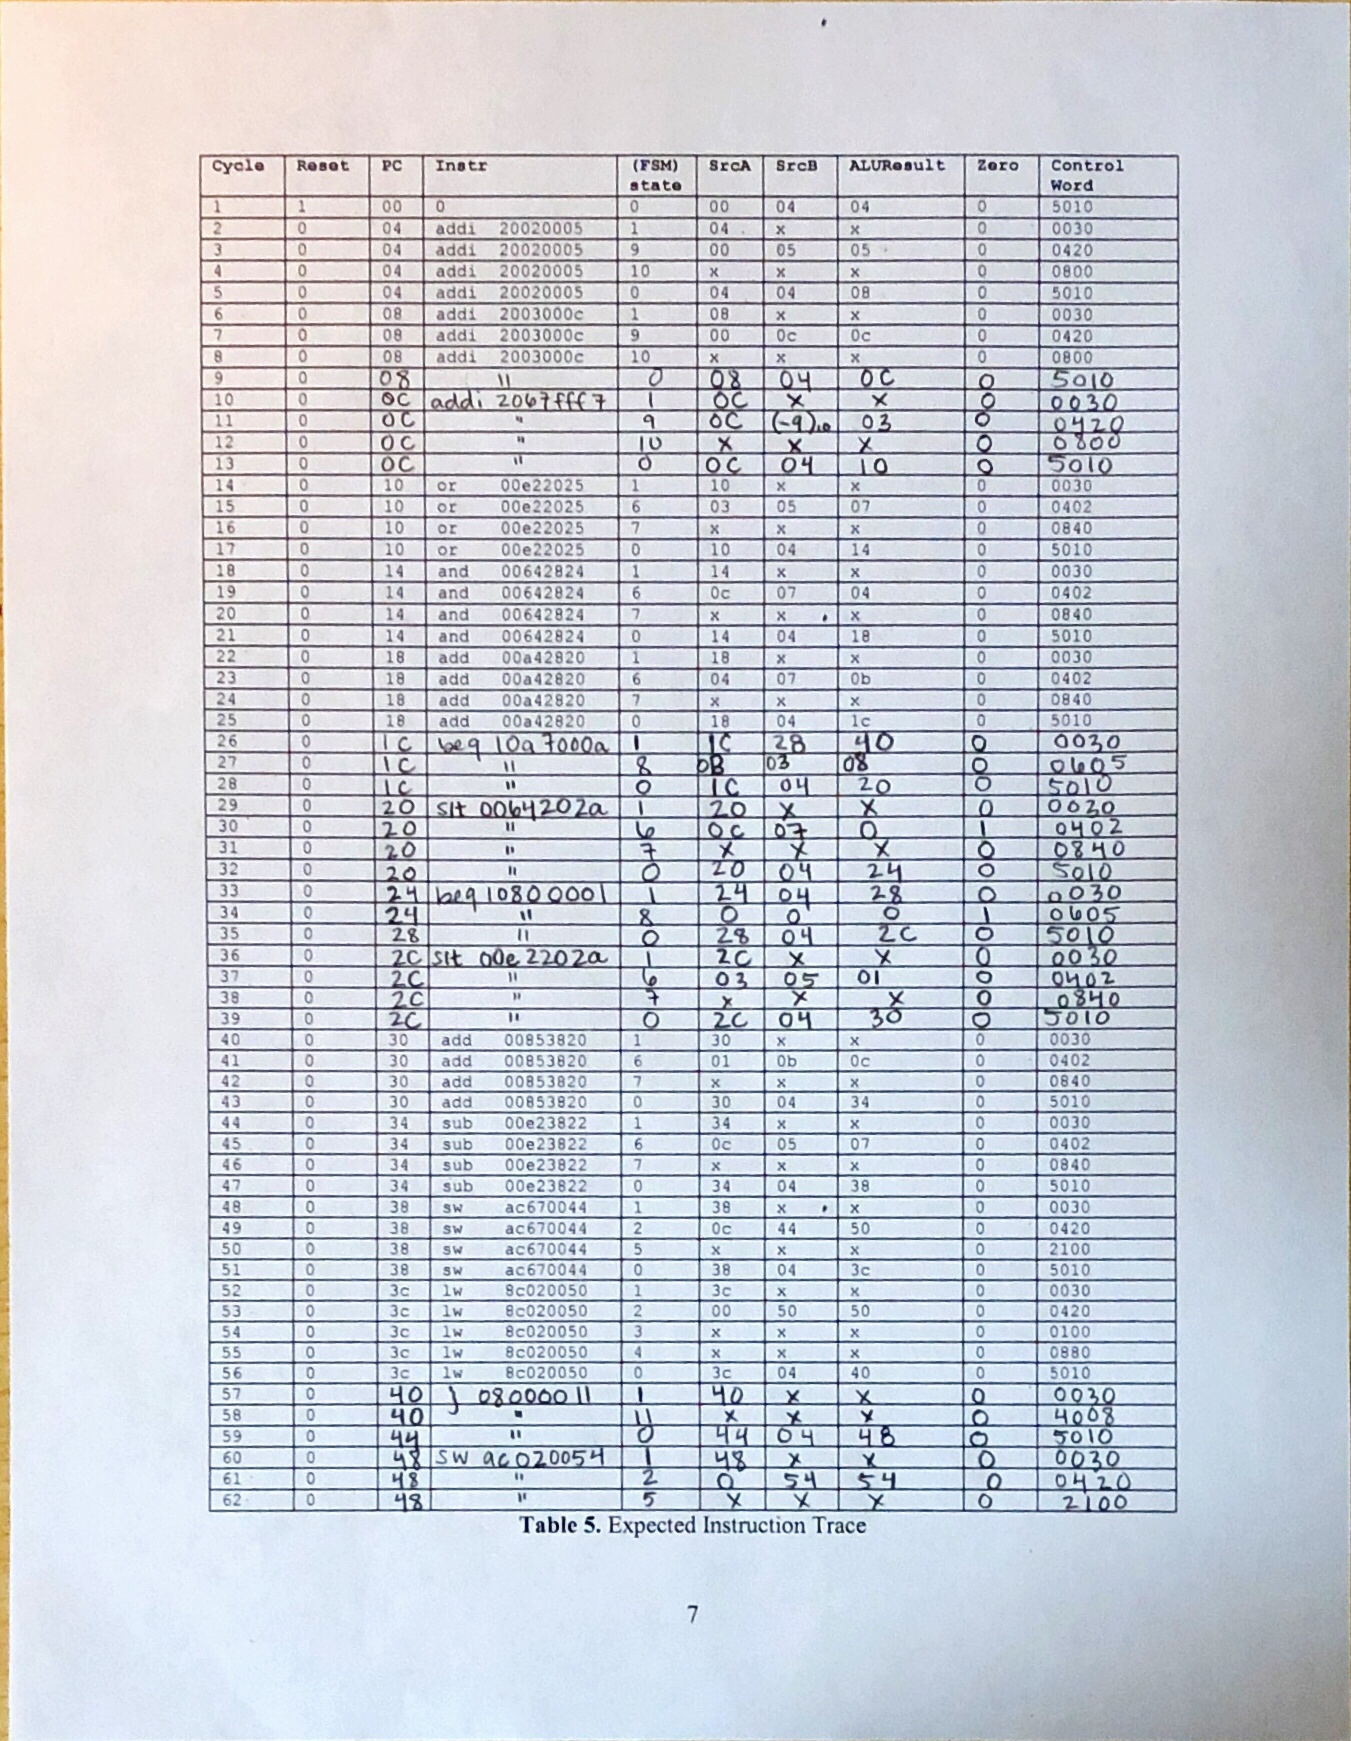 Cycle Reset PC Instr (FSM) state SrcA SrcB ALUResult Zero Control Word
1 1 00 0 0 00 04 04 0 5010
2 0 04 addi 20020005 1 04 x x 0 0030
3 0 04 addi 20020005 9 00 05 05 0 0420
4 0 04 addi 20020005 10 x x x 0 0800
5 0 04 addi 20020005 0 04 04 08 0 5010
6 0 08 addi 2003000c 1 08 x x 0 0030
7 0 08 addi 2003000c 9 00 0c 0c 0 0420
8 0 08 addi 2003000c 10 x x x 0 0800
9 0 08 " 0 08 04 0C 0 5010
10 0 0C addi 2067fff7 1 0C x x 0 0030
11 0 0C " 9 0C (-9)10 03 0 0420
12 0 0C " 10 x x x 0 0800
13 0 0C " 0 0C 04 10 0 5010
14 0 10 or 00e22025 1 10 x x 0 0030
15 0 10 or 00e22025 6 03 05 07 0 0402
16 0 10 or 00e22025 7 x x x 0 0840
17 0 10 or 00e22025 0 10 04 14 0 5010
18 0 14 and 00642824 1 14 x x 0 0030
19 0 14 and 00642824 6 0c 07 04 0 0402
20 0 14 and 00642824 7 x x x 0 0840
21 0 14 and 00642824 0 14 04 18 0 5010
22 0 18 add 00a42820 1 18 x x 0 0030
23 0 18 add 00a42820 6 04 07 0b 0 0402
24 0 18 add 00a42820 7 x x x 0 0840
25 0 18 add 00a42820 0 18 04 1c 0 5010
26 0 1C beq 10a7000a 1 1C 28 40 0 0030
27 0 1C " 8 0B 03 08 0 0605
28 0 1C " 0 1C 04 20 0 5010
29 0 20 slt 0064202a 1 20 x x 0 0030
30 0 20 " 6 0C 07 0 1 0402
31 0 20 " 7 x x x 0 0840
32 0 20 " 0 20 04 24 0 5010
33 0 24 beq 10800001 1 24 04 28 0 0030
34 0 24 " 8 0 0 0 1 0605
35 0 28 " 0 28 04 2C 0 5010
36 0 2C slt 00e2202a 1 2C x x 0 0030
37 0 2C " 6 03 05 01 0 0402
38 0 2C " 7 x x x 0 0840
39 0 2C " 0 2C 04 30 0 5010
40 0 30 add 00853820 1 30 x x 0 0030
41 0 30 add 00853820 6 01 0b 0c 0 0402
42 0 30 add 00853820 7 x x x 0 0840
43 0 30 add 00853820 0 30 04 34 0 5010
44 0 34 sub 00e23822 1 34 x x 0 0030
45 0 34 sub 00e23822 6 0c 05 07 0 0402
46 0 34 sub 00e23822 7 x x x 0 0840
47 0 34 sub 00e23822 0 34 04 38 0 5010
48 0 38 sw ac670044 1 38 x x 0 0030
49 0 38 sw ac670044 2 0c 44 50 0 0420
50 0 38 sw ac670044 5 x x x 0 2100
51 0 38 sw ac670044 0 38 04 3c 0 5010
52 0 3c lw 8c020050 1 3c x x 0 0030
53 0 3c lw 8c020050 2 00 50 50 0 0420
54 0 3c lw 8c020050 3 x x x 0 0100
55 0 3c lw 8c020050 4 x x x 0 0880
56 0 3c lw 8c020050 0 3c 04 40 0 5010
57 0 40 j 08000011 1 40 x x 0 0030
58 0 40 " 11 x x x 0 4008
59 0 44 " 0 44 04 48 0 5010
60 0 48 sw ac020054 1 48 x x 0 0030
61 0 48 " 2 0 54 54 0 0420
62 0 48 " 5 x x x 0 2100
Table 5. Expected Instruction Trace
7